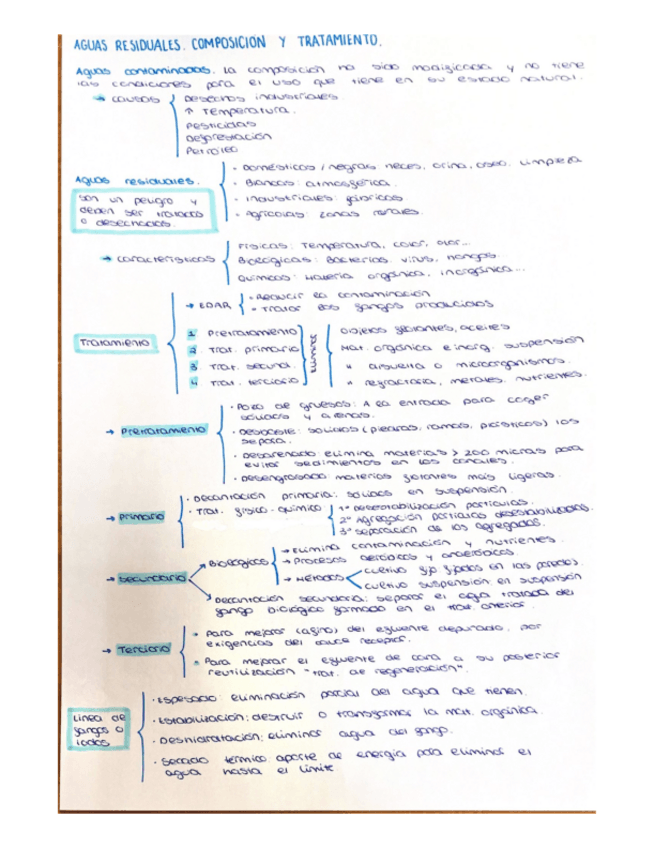 AGUAS RESIDUALES. COMPOSICIÓN Y TRATAMIENTO.
Aguas contaminadas. La composición ha sido modificada y no tiene
las condiciones para el uso que tiene en su estado natural.
→ causas
Desechos industriales
↑ Temperatura.
Pesticidas
Deforestación
Petróleo
Aguas residuales.
Son un peligro y
deben ser tratadas
o desechadas.
· Domésticos / negras: heces, orina, aseo. Limpieza
· Blancas: atmosférica.
· Industriales: fábricas
· Agrícolas: zonas rurales.
→ características
Físicas: Temperatura, color, olor...
Biológicas: Bacterias, virus, hongos.
Químicas: Materia orgánica, inorgánica...
Tratamiento
→ EDAR
· Reducir la contaminación
· Tratar los fangos producidos
1 Pretratamiento
2 Trat. primario
3 Trat. secund.
4 Trat. terciario
Elimina
Objetos flotantes, aceites
Mat. orgánica e inorg. suspensión
" disuelta o microorganismos.
" refractaria, metales, nutrientes.
→ Pretratamiento
· Pozo de gruesos: A la entrada para coger
sólidos y arenas.
· Desbaste: sólidos (piedras, ramas, plásticos) los
separa.
· Desarenado: elimina materias > 200 micras para
evitar sedimientos en los canales.
· Desengrasado: materias flotantes más ligeras.
→ Primario
· Decantación primaria: sólidos en suspensión.
· Trat. físico-químico
1º Desestabilización partículas.
2º Agregación partículas desestabilizadas.
3º separación de los agregados.
→ Secundario
Biológicos
→ Elimina contaminación y nutrientes.
→ Procesos aeróbicos y anaeróbicos.
→ Métodos
cultivo fijo: fijados en las paredes.
cultivo suspensión: en suspensión
Decantación secundaria: separar el agua tratada del
fango biológico formado en el trat. anterior.
→ Terciario
· Para mejorar (afino) del efluente depurado, por
exigencias del cauce receptor.
· Para mejorar el efluente de cara a su posterior
reutilización "trat. de regeneración".
Línea de
fangos o
lodos
· Espesado: eliminación parcial del agua que tienen.
· Estabilización: destruir o transformar la mat. orgánica.
· Deshidratación: eliminar agua del fango.
· Secado térmico: aporte de energía para eliminar el
agua hasta el límite